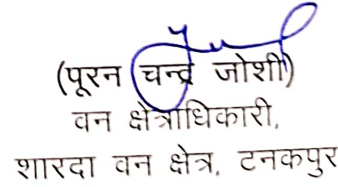 (पूरन चन्द्र जोशी)
वन क्षेत्राधिकारी,
शारदा वन क्षेत्र, टनकपुर